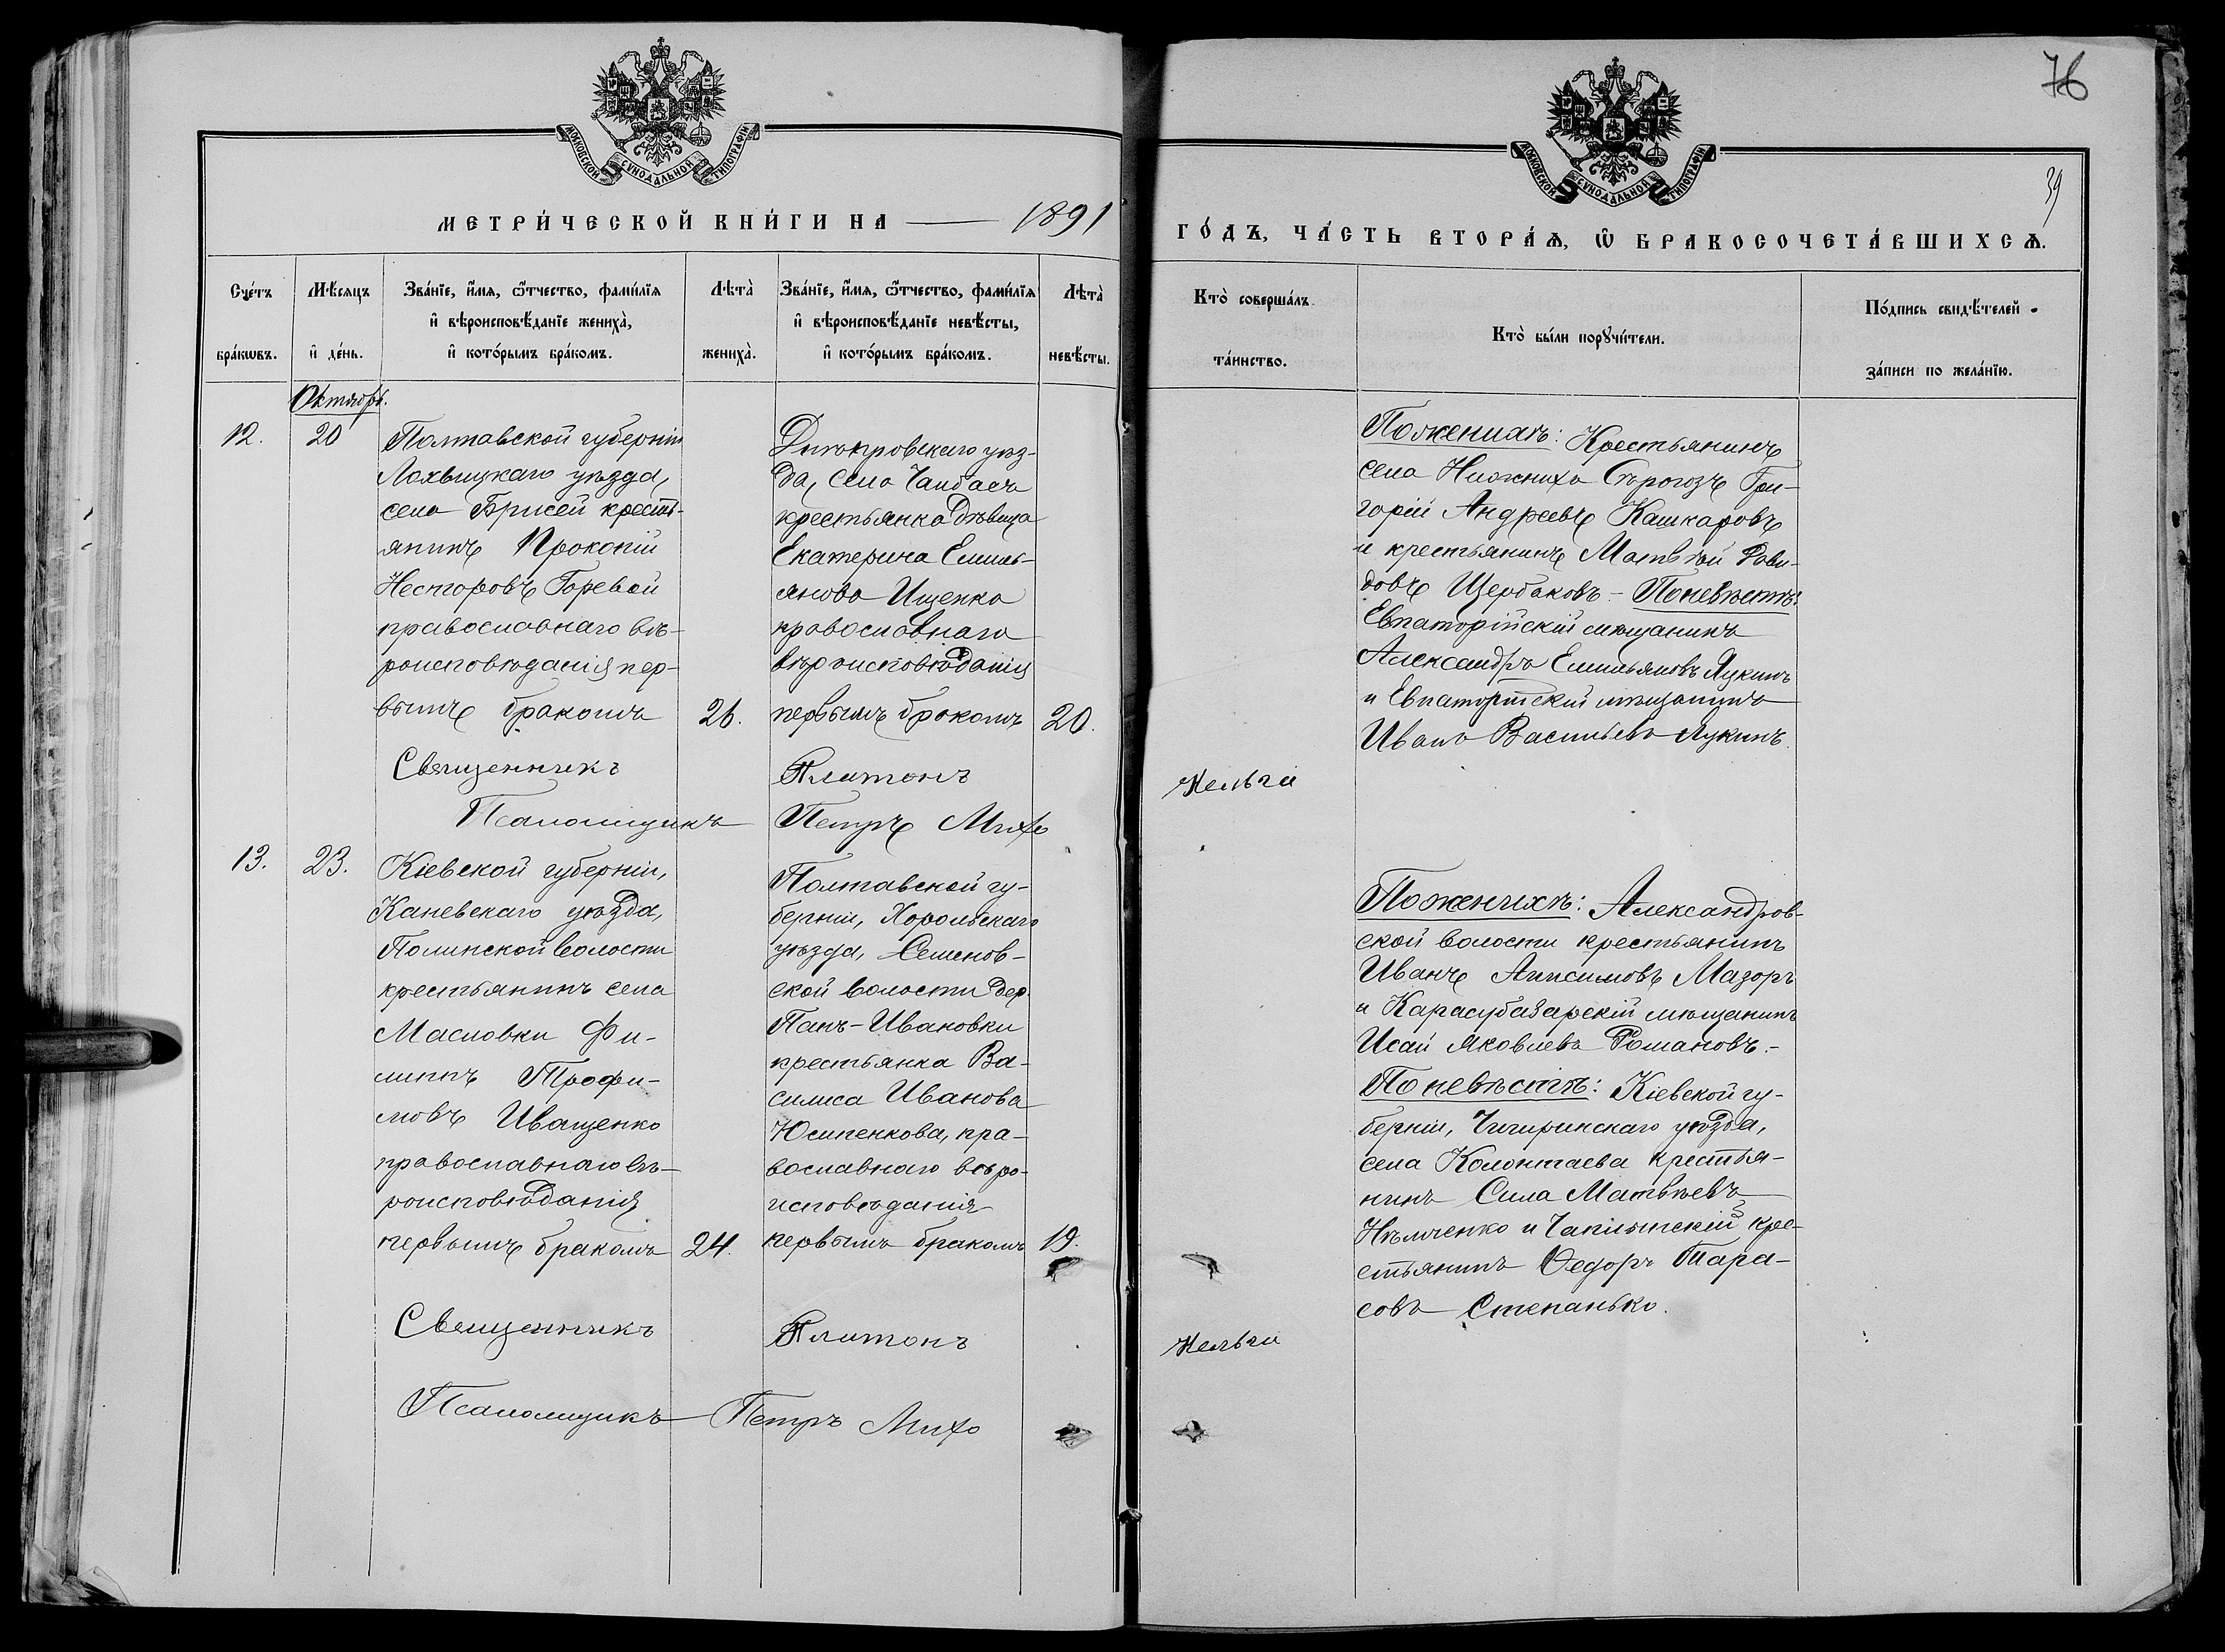 76
39
МОСКОВСКОЙ СѴНОДАЛЬНОЙ ТИПОГРАФІИ
МОСКОВСКОЙ СѴНОДАЛЬНОЙ ТИПОГРАФІИ
МЕТРИ́ЧЕСКОЙ КНИ́ГИ НА 1891
ГО́ДЪ, ЧА́СТЬ ВТОРА́Ѧ, Ѽ БРАКОСОЧЕТА́ВШИХСѦ.
Сче́тъ бра́кѡвъ.
Мѣ́сяцъ и҆ де́нь.
Зва́нїе, и҆́мя, ѻ҆́тчество, фами́лїя
и҆ вѣроисповѣ́данїе жениха̀,
и҆ кото́рымъ бра́комъ.
Лѣ́та жениха̀.
Зва́нїе, и҆́мя, ѻ҆́тчество, фами́лїя
и҆ вѣроисповѣ́данїе невѣ́сты,
и҆ кото́рымъ бра́комъ.
Лѣ́та невѣ́сты.
Кто̀ соверша́лъ та́инство.
Кто̀ бы́ли порꙋчи́тели.
По́дпись свидѣ́телей за́писи по жела́нїю.
Октябрь.
12.
20
Полтавской губерніи
Лохвицкаго уѣзда,
села Брисей крестьянинъ
Прокопій
Несторовъ Горевой
православнаго вѣ-
роисповѣданія пер-
вымъ бракомъ
26.
Днѣпровскаго уѣз-
да, села Чанбаевъ
крестьянка дѣвица
Екатерина Емиль-
янова Ищенко
православнаго
вѣроисповѣданія
первымъ бракомъ
20.
По женихѣ: Крестьянинъ
села Нижнихъ Сѣрогозъ Гри-
горій Андреевъ Кашкаровъ
и крестьянинъ Матвѣй Дави-
довъ Щербаковъ - По невѣстѣ:
Евпаторійскій мѣщанинъ
Александръ Емильяновъ Лукинъ
и Евпаторійскій мѣщанинъ
Иванъ Васильевъ Лукинъ.
Священникъ Платонъ Кельчи
Псаломщикъ Петръ Михо
13.
23.
Кіевской губерніи,
Каневскаго уѣзда,
волости
крестьянинъ села
Масловки Фи-
липпъ Трофи-
мовъ Иващенко
православнаго вѣ-
роисповѣданія
первымъ бракомъ
24.
Полтавской гу-
берніи, Хорольскаго
уѣзда, Семенов-
ской волости дер.
Панъ-Ивановки
крестьянка Ва-
силиса Иванова
Юсипенкова, пра-
вославнаго вѣро-
исповѣданія
первымъ бракомъ
19.
По женихѣ: Александров-
ской волости крестьянинъ
Иванъ Анисимовъ Мазоръ
и Карасубазарскій мѣщанинъ
Исай Яковлевъ Романовъ.-
По невѣстѣ: Кіевской гу-
берніи, Чигиринскаго уѣзда,
села Колонтаева крестья-
нинъ Сила Матвѣевъ
Нѣмченко и Чаплинскій кре-
стьянинъ Ѳедоръ Тара-
совъ Степанько.
Священникъ Платонъ Кельчи
Псаломщикъ Петръ Михо